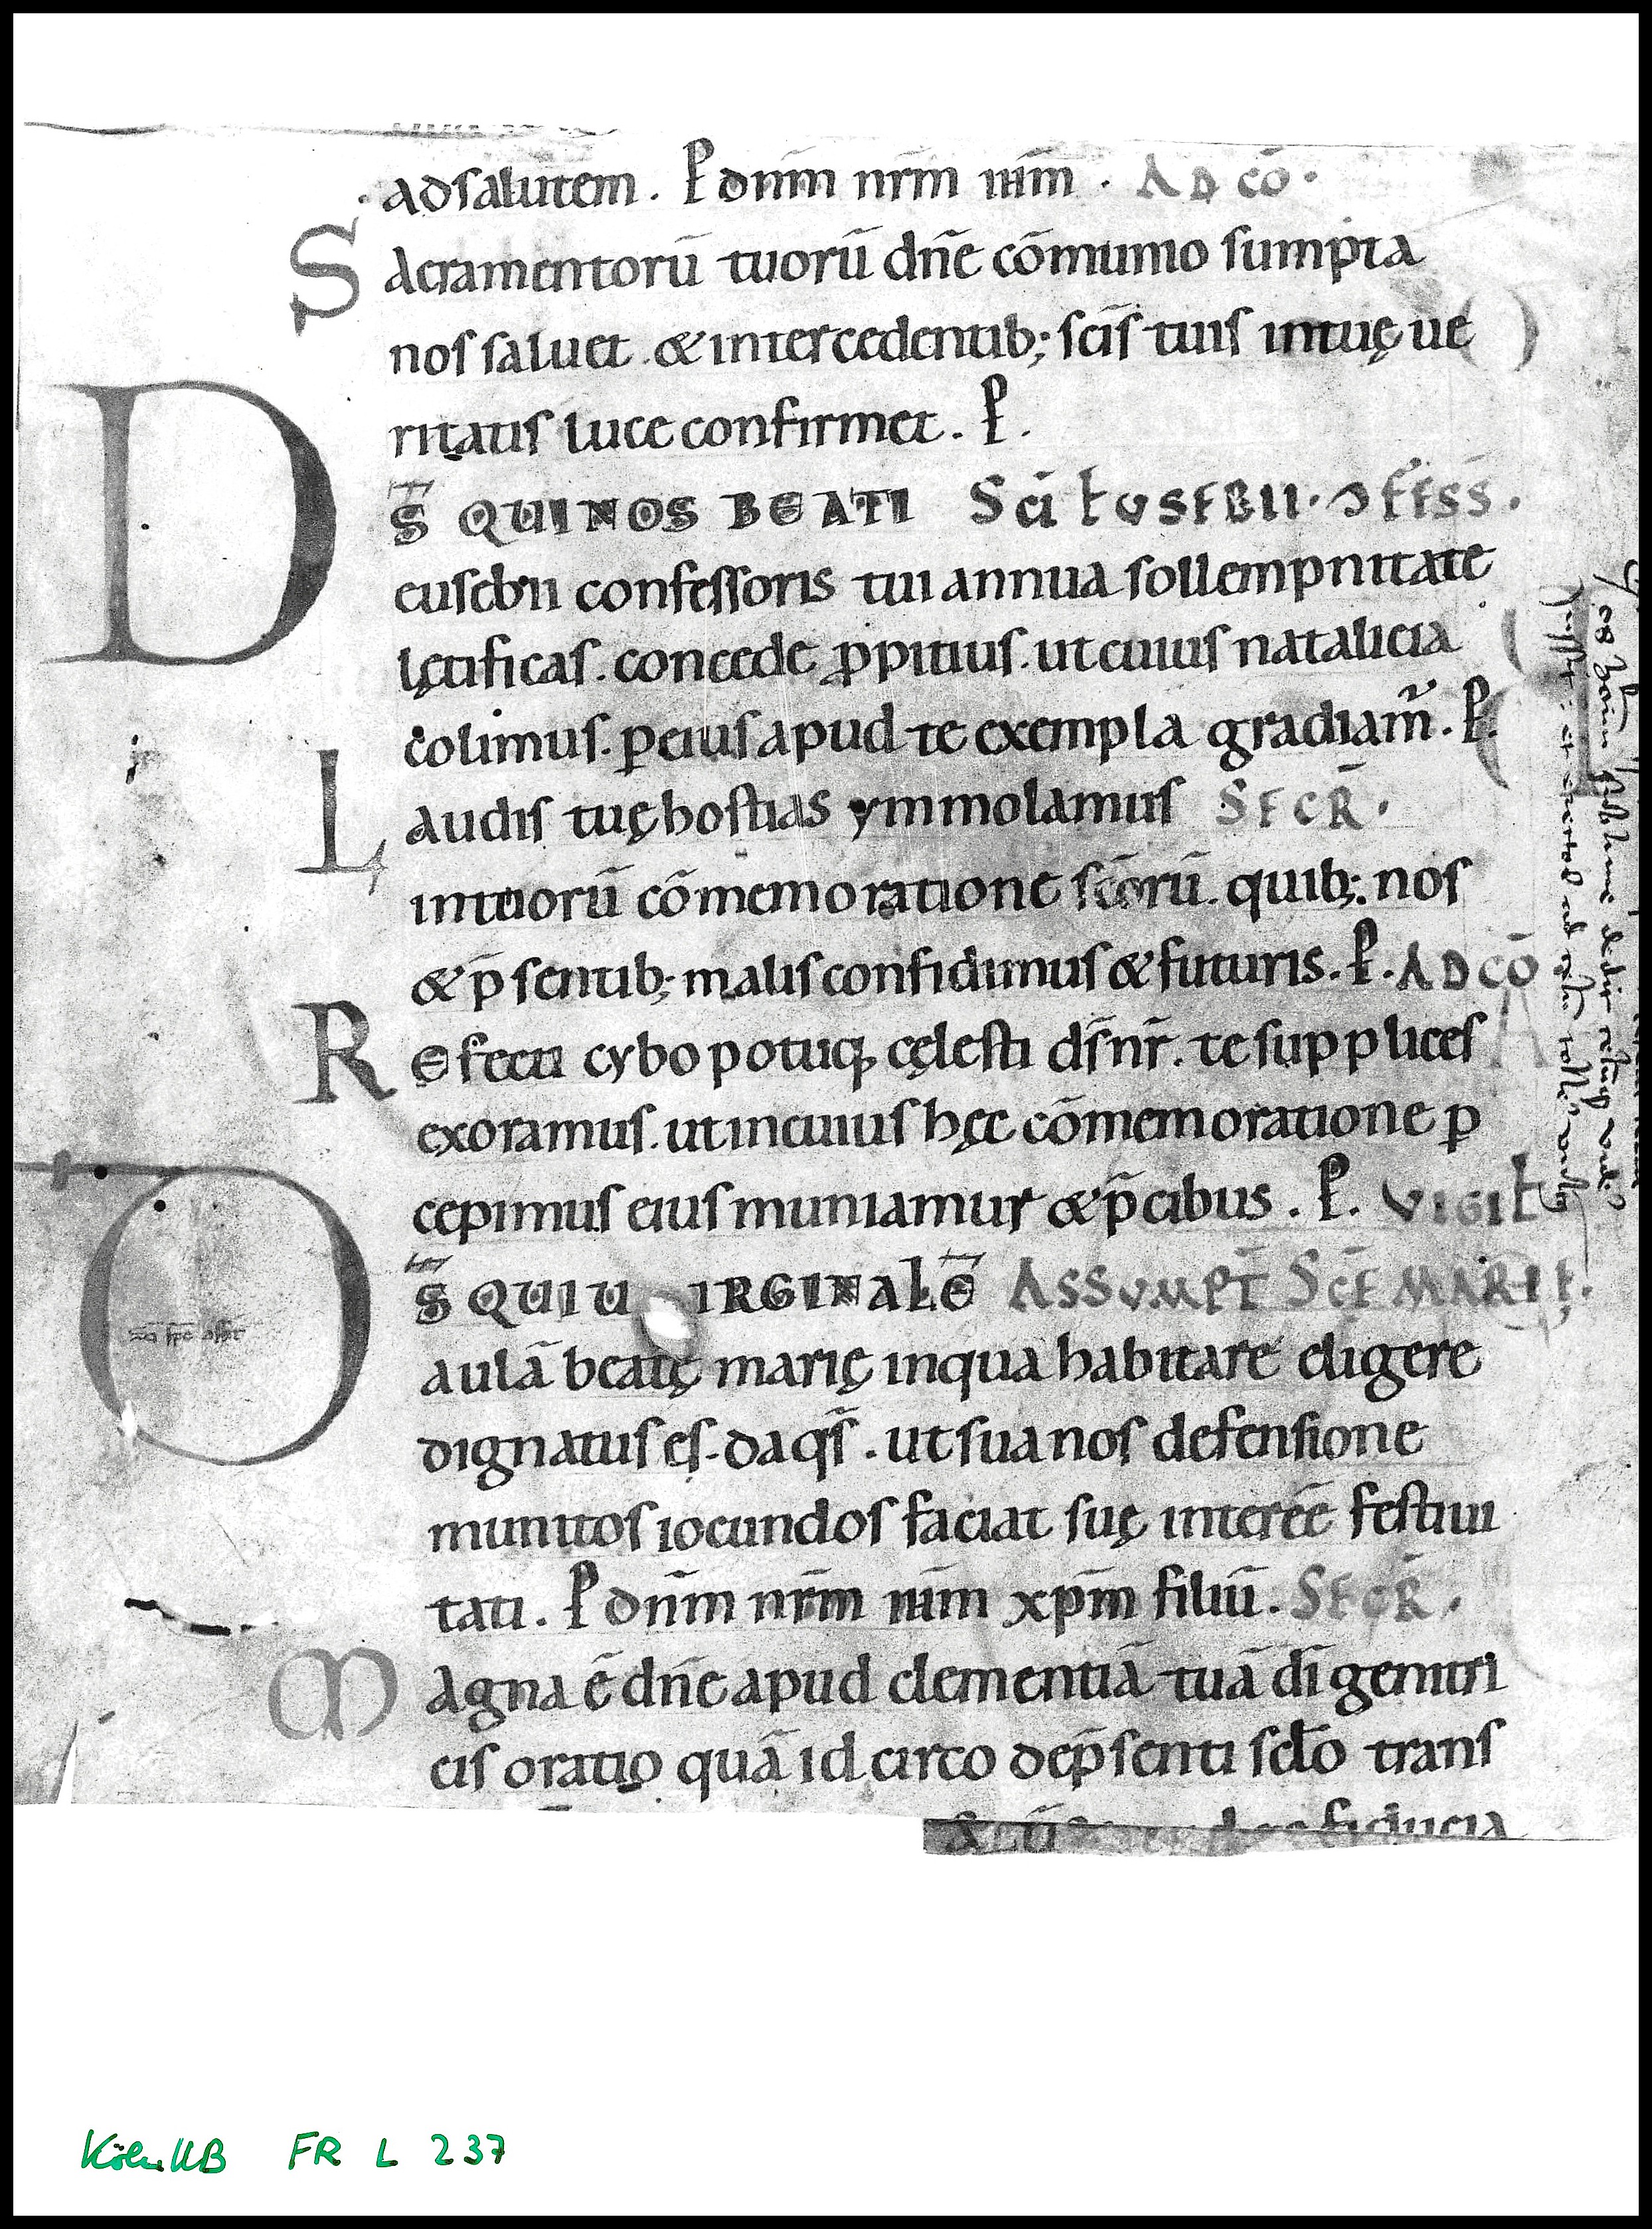 adsalutem. P dnm̄ nrm̄ ihm̄. AD CŌ.
Sacramentorū tuorū dn̄e cōmunio sumpta
nos saluet. & intercedentib; scīs tuis intuę ue
ritatis luce confirmet. P.
DS̄ QUI NOS BEATI SCI EUSEBII. CFESS.
eusebii confessoris tui annua sollempnitate
lętificas. concede ꝓpitius. ut cuius natalicia
colimus. ꝑ eius apud te exempla gradiam̄. P.
Laudis tuę hostias ymmolamus SECR̄.
intuorū cōmemoratione scōrū. quib; nos
& p̄sentib; malis confidimus & futuris. P. AD CŌ
Refecti cybo potuq; cęlesti ds̄ nr̄. te supplices
exoramus. ut incuius hęc cōmemoratione ꝑ
cepimus eius muniamur & p̄cibus. P. VIGIŁ
DS̄ QUI UIRGINALĒ ASSUMPT̄ SCĒ MARIĘ.
aulā beatę marię inqua habitare eligere
dignatus es. da qs̄. ut sua nos defensione
munitos iocundos faciat suę interēē festiui
tati. P dnm̄ nrm̄ ihm̄ xpm̄ filiū. SECR̄.
Magna ē dn̄e apud clementiā tuā dī genitri
cis oratio quā id circo dep̄senti sclo trans
fiducia
Köln UB FR L 237